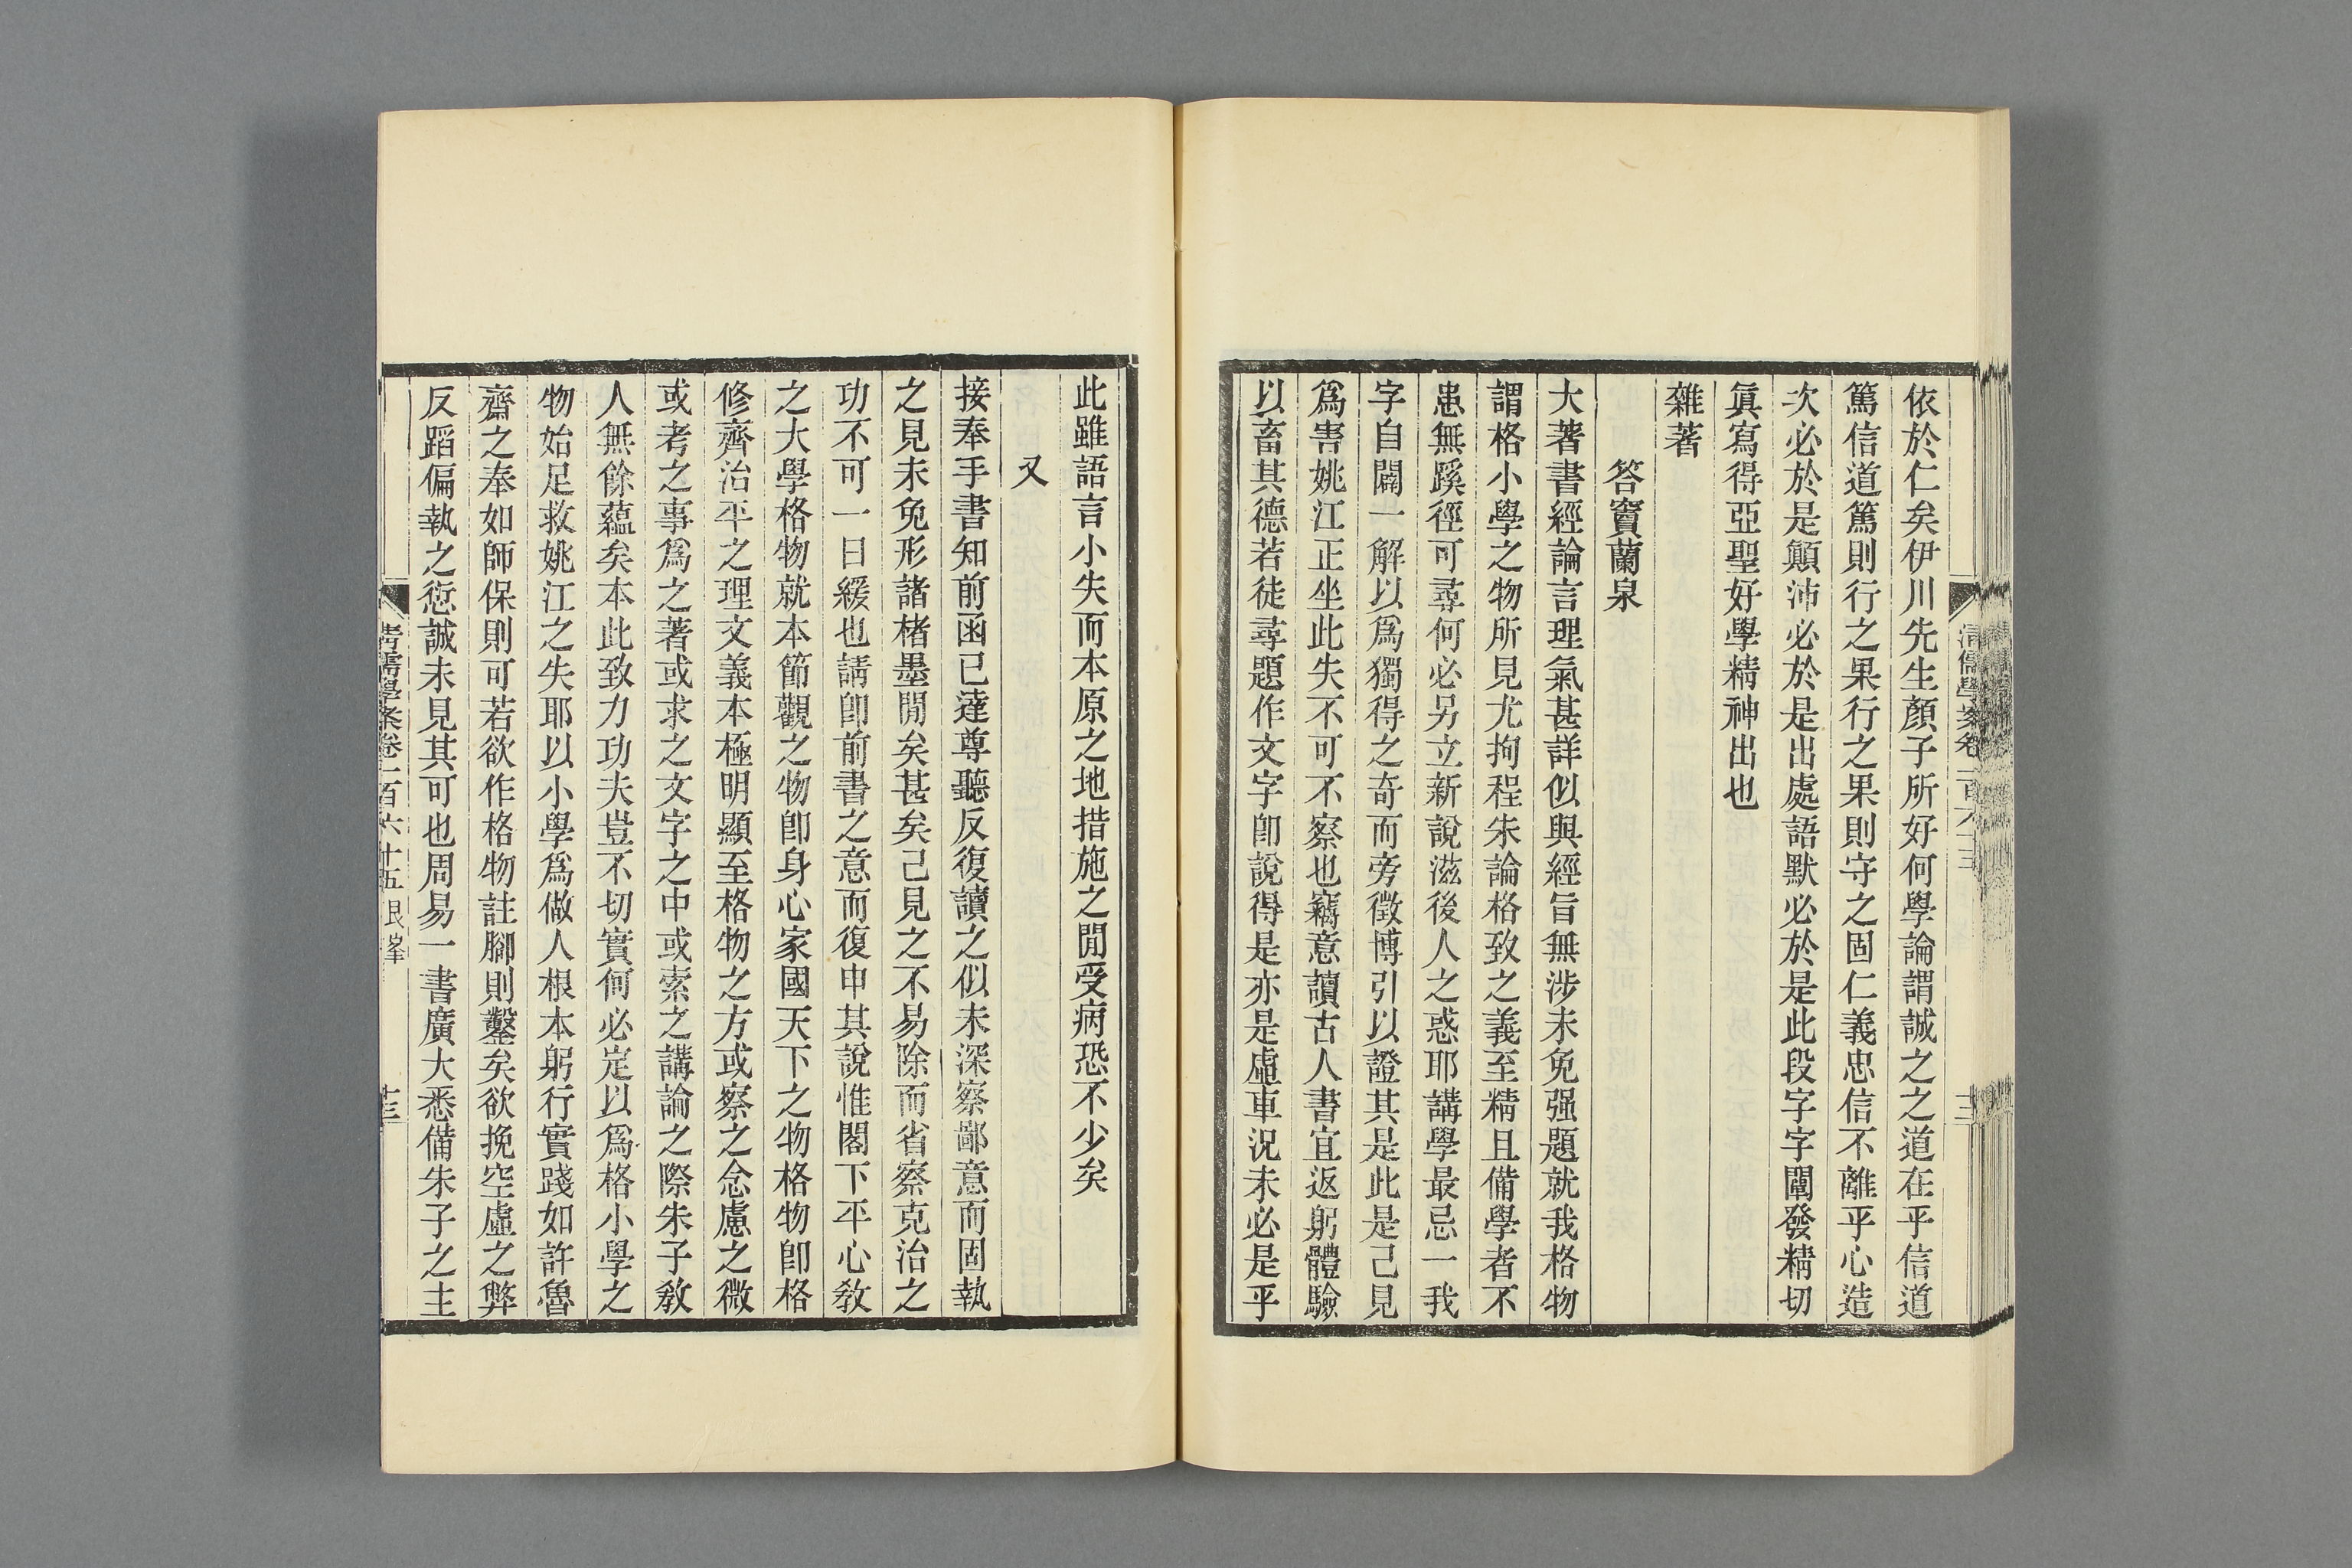 依於仁矣伊川先生顏子所好何學論謂誠之之道在乎信道
篤信道篤則行之果行之果則守之固仁義忠信不離乎心造
次必於是顚沛必於是出處語默必於是此段字字闡發精切
眞寫得亞聖好學精神出也
雜著
答竇蘭泉
大著書經論言理氣甚詳似與經旨無涉未免强題就我格物
謂格小學之物所見尤拘程朱論格致之義至精且備學者不
患無蹊徑可尋何必另立新說滋後人之惑耶講學最忌一我
字自闢一解以爲獨得之奇而旁徵博引以證其是此是己見
爲害姚江正坐此失不可不察也竊意讀古人書宜返躬體驗
以畜其德若徒尋題作文字卽說得是亦是虛車況未必是乎
此雖語言小失而本原之地措施之閒受病恐不少矣
又
接奉手書知前函已達尊聽反復讀之似未深察鄙意而固執
之見未免形諸楮墨閒矣甚矣己見之不易除而省察克治之
功不可一日緩也請卽前書之意而復申其說惟閣下平心敎
之大學格物就本節觀之物卽身心家國天下之物格物卽格
修齊治平之理文義本極明顯至格物之方或察之念慮之微
或考之事爲之著或求之文字之中或索之講論之際朱子敎
人無餘蘊矣本此致力功夫豈不切實何必定以爲格小學之
物始足救姚江之失耶以小學爲做人根本躬行實踐如許魯
齋之奉如師保則可若欲作格物註腳則鑿矣欲挽空虛之弊
反蹈偏執之愆誠未見其可也周易一書廣大悉備朱子之主
清儒學案卷一百六十五 艮峯
十三